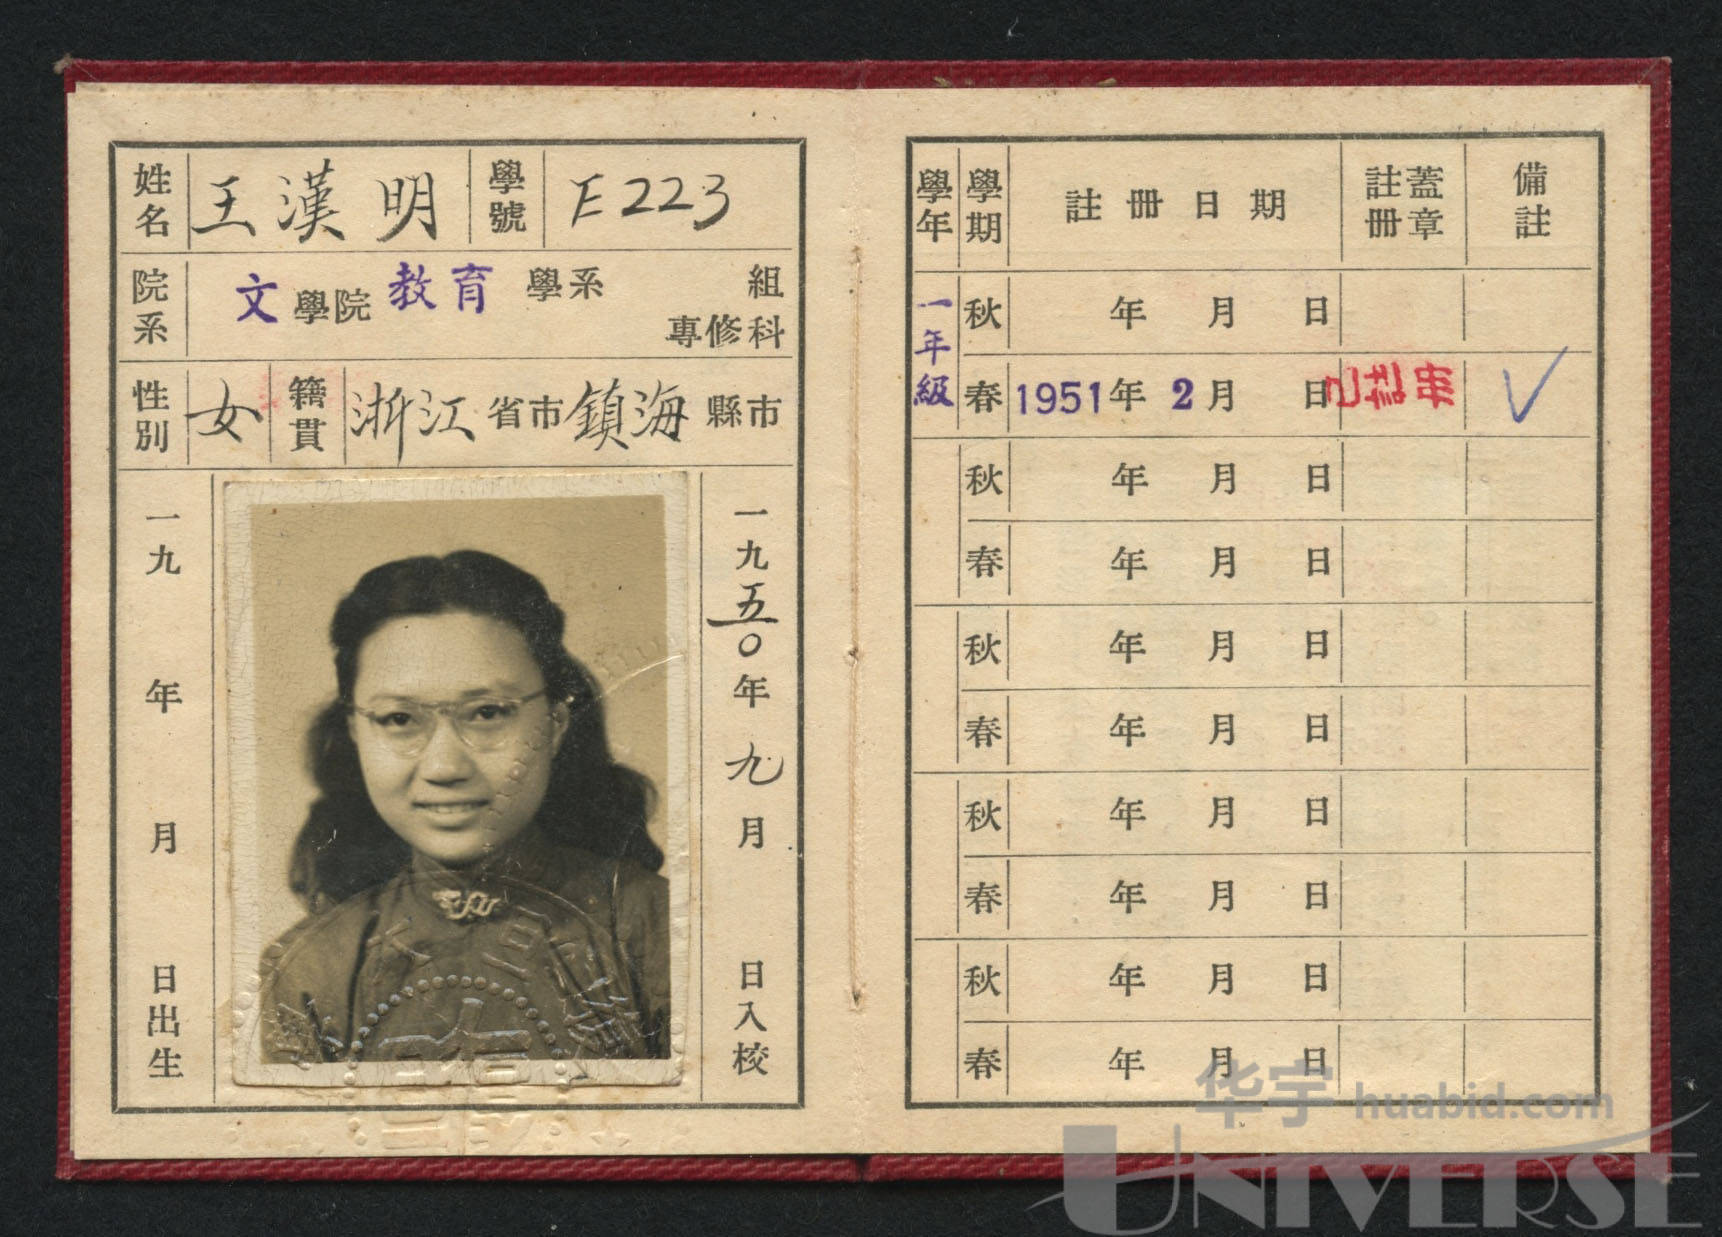 姓名 王漢明 學號 E223
院系 文學院 教育 學系 組
專修科
性別 女 籍貫 浙江省市鎮海縣市
一九 年 月 日出生
一九五〇年九月 日入校
學年 學期 註冊日期 註冊蓋章 備註
一年級 秋 年 月 日
春 1951年 2月 日 已註冊 ✓
秋 年 月 日
春 年 月 日
秋 年 月 日
春 年 月 日
秋 年 月 日
春 年 月 日
秋 年 月 日
春 年 月 日
华宇 huabid.com
UNIVERSE